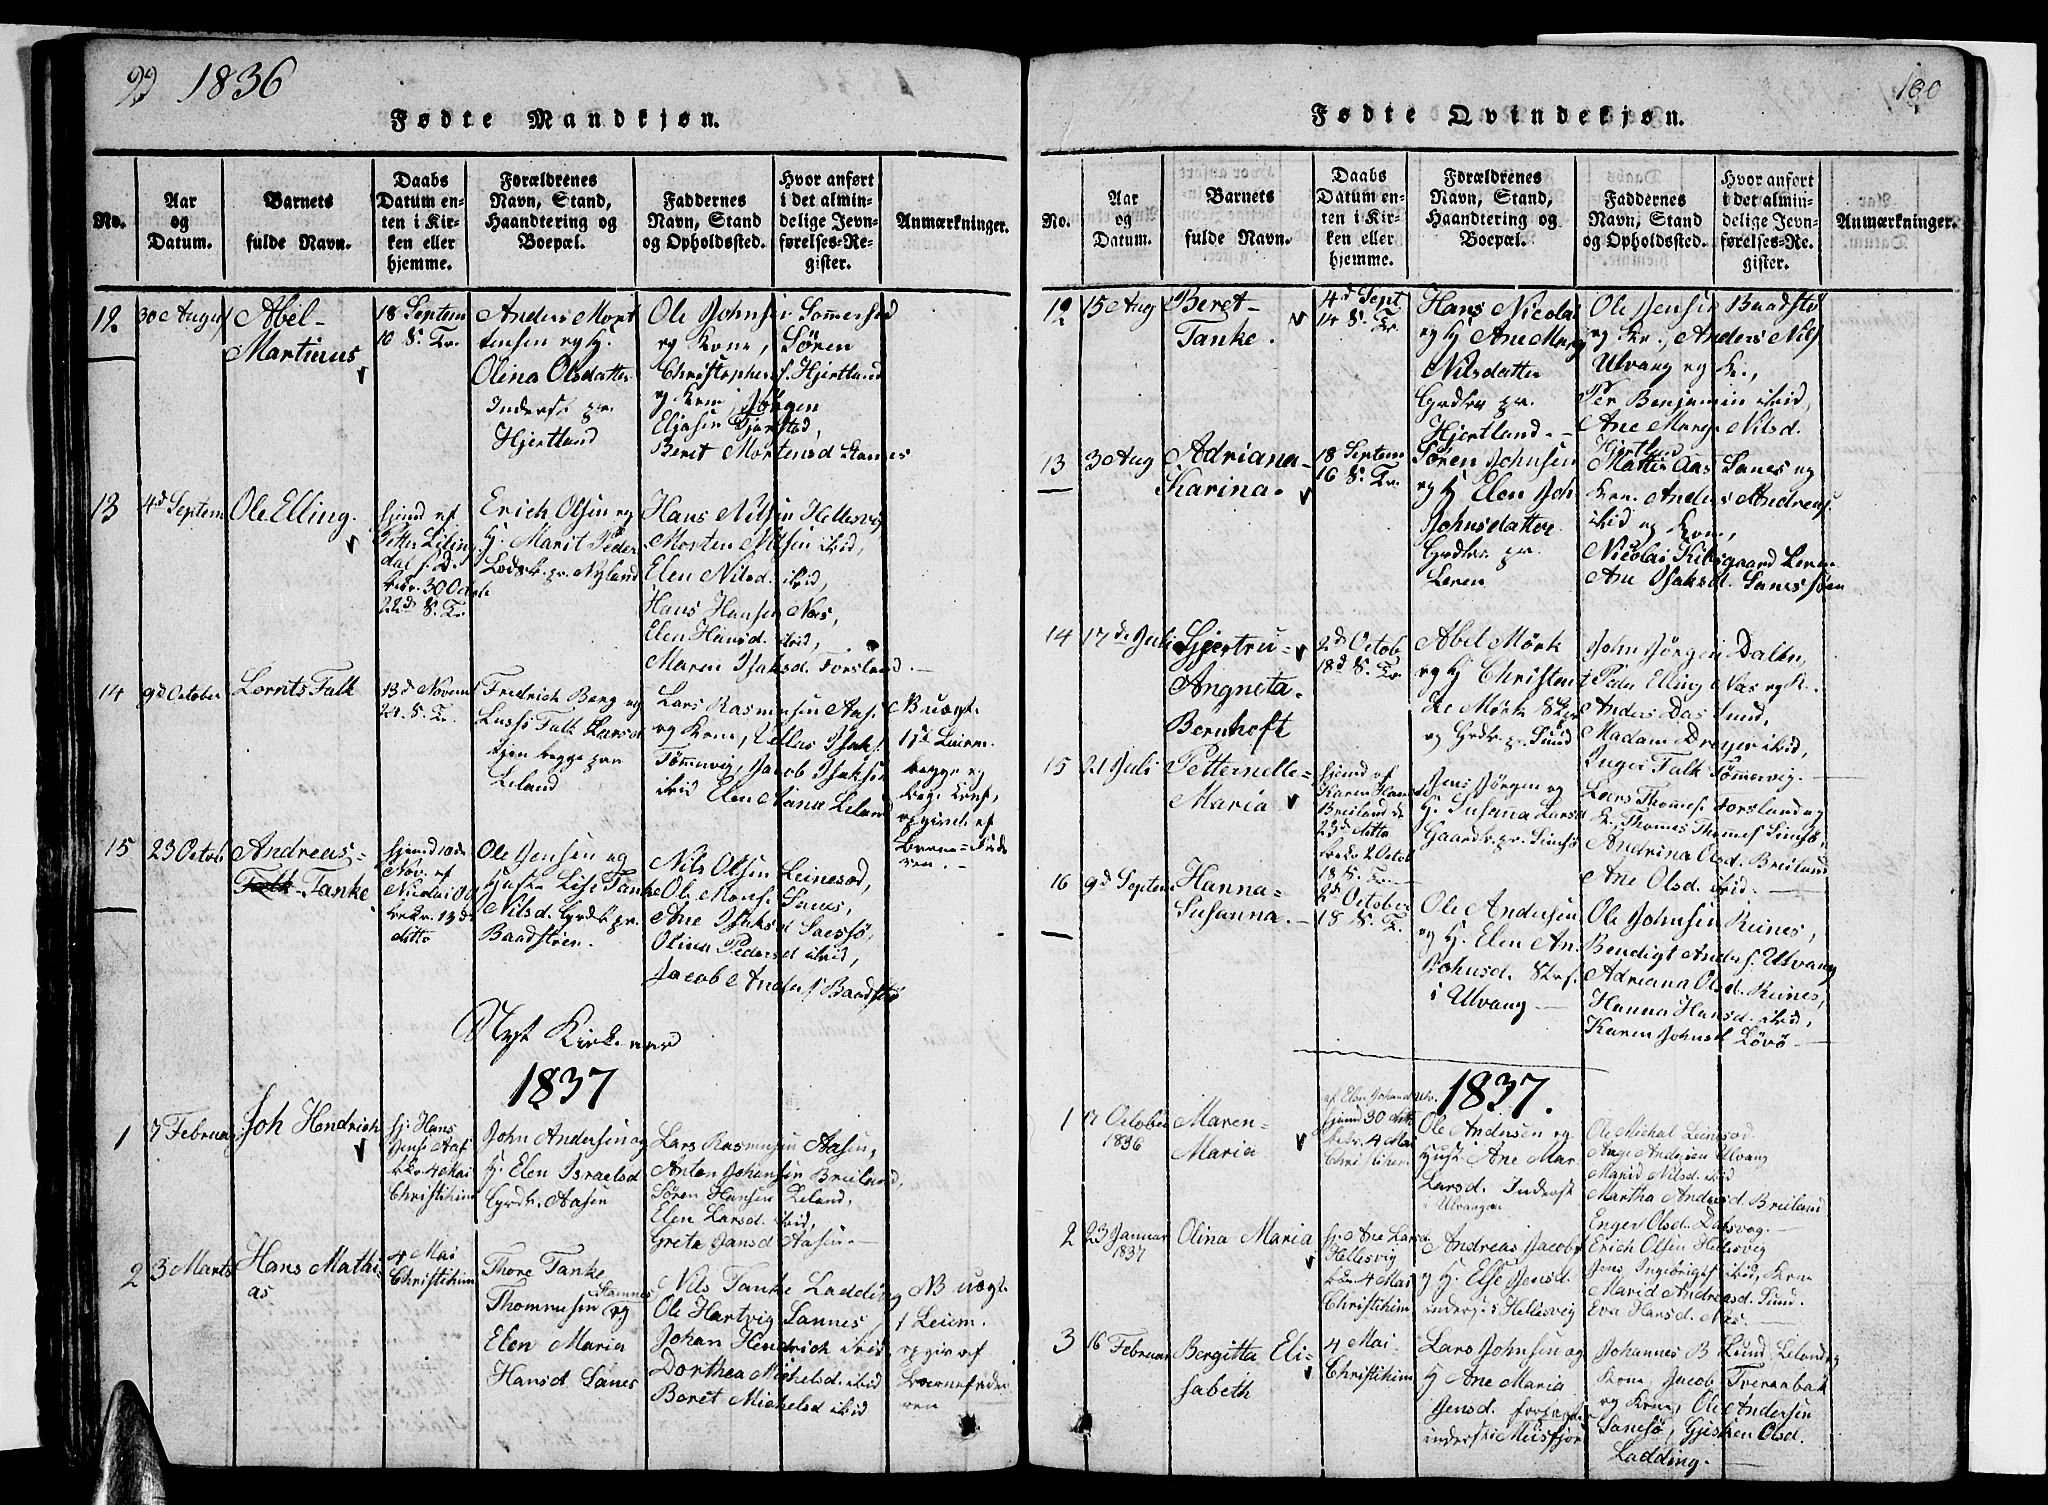 99 1836
Fødte Mandkjøn.
No.
Aar og Datum.
Barnets fulde Navn.
Daabs Datum enten i Kirken eller hjemme.
Forældrenes Navn, Stand, Haandtering og Boepæl.
Faddernes Navn, Stand og Opholdssted.
Hvor anført i det almindelige Jevnførelses-Register.
Anmærkninger.
12.
30 August
Abel-
Martinus
18 Septem
16 S. Tr.
Anders Mort
tensen og H.
Olina Olsdatter
Inderst pr.
Hjertland
Ole Johnsen Sommersed
og Kone, Søren
Christophers. Hjertland
og Kone, Jørgen
Eljasen
Beret Mortensd Stamnes
13
4d Septem
Ole Elling.
hjemd af
Petter
dal
bekr. 30 Octob
22d S. Tr.
Erich Olsen og
H. Marit Peder
pr. Nyland
Hans Nilsen Hellesvig
Morten Nilsen ibid,
Elen Nilsd. ibid,
Hans Hansen Næs,
Elen Hansd. ibid,
Maren Isaksd. Forsland.
14
9d October
Lornts Falk
13d Novem
24. S. Tr.
Fredrich Berg og
Lussi Falk Larsd
begge paa
Leland
Lars Rasmusen Aas.
og Kone, Isaks.
Tømmervig, Jacob Isaksen
ibid Elen Anna Leland
N B uægt.
1ste Leierm.
begge og
opgivet af
Barne=Fade
ren.
15
23 Octob
Andreas=
Falk Tanke
hjemd 10de
Nov. af
Nicolai
bekr. 13de
ditto
Ole Jensen og
Hustr Lise Tanke
Nilsd. Grdbr. pr.
Baadstøen.
Nils Olsen Leinesod,
Ole Mons. Sanes,
Ane Isaksd Sanessø,
Olina Pedersd ibid,
Jacob Anders. Baadstø
Nyt Kirkeaar
1837
1
7 Februar
Joh Hendrich
hj. Hans
Jens. Aas
bekr 4 Mai
Christihim
John Andersen og
H. Elen Israelsd
Grdbr. Aasen
Lars Rasmusen Aasen,
Anton Johansen Breiland,
Søren Hansen Leland,
Elen Larsd. ibid,
Greta Jansd Aasen-
2
3 Marts
Hans Mathi-
as
4 Mai
Christihim
Thore Tanke
Thommesen Stamnes og
Elen Maria
Hansd Sanes
Nils Tanke Ladding
Ole Hartvig Sannes
Johan Hendrich ibid
Dorthea Michelsd ibid
Beret Michelsd ibid
N B uægt
1 Leierm.
opgiv af
Barnefade
ren
100
Fødte Qvindekjøn.
No.
Aar og Datum.
Barnets fulde Navn.
Daabs Datum enten i Kirken eller hjemme.
Forældrenes Navn, Stand, Haandtering og Boepæl.
Faddernes Navn, Stand og Opholdssted.
Hvor anført i det almindelige Jevnførelses-Register.
Anmærkninger.
12
15 Aug
Beret-
Tanke.
4d Sept
14 S. Tr.
Hans Nicolai
og H Ane Marg
Nilsdatter
Grdbr pr.
Hjertland.-
Ole Jensen Baadstø
og Kr., Anders Nils
Ulvang og K.,
Per Benjamin ibid,
Ane Marg. Nilsd.
Hjertland
13
3 Aug
Adriana-
Karina.
18 Septem
16 S. Tr.
Søren Johnsen
og H Elen Joh
Johnsdatter
Grdbr pr.
Leren
Mattis Aas Sanes og
Kone. Anders Andreas.
ibid og Kone,
Nicolai Kilsgaard Leren
Ane Isaksd. Sanessøen
14
17de Juli
Gjertru-
Angneta.
Bernhoft
2d Octob
18d S. Tr.
Abel Mørk
og H Christen
ze Mørk Skr
og Grdbr. pr. Sund
John Jørgen Dalen,
Peder Elling Næs og K.
Anders Das Sund,
Madam Dreyer ibid,
Inger Falk Tømmervig.
15
21 Juli
Petternelle-
Maria
hjemd af
Karen Hansd
Breiland de
23d ditto
bekr 2 Octob
18 S. Tr.
Jens Jørgen og
H. Susanna Larsd
Gaardbr. pr.
Lars Thomes. Forsland og
K. Thomes Thomes
Andrina Olsd. Breiland
Ane Olsd. ibid.
16
9d Septem
Hanna-
Susanna.
2d October
18 S. Tr.
Ole Andersen
og H. Elen An.
Johnsd.
i Ulvang
Ole Johnsen Reines,
Bendigt Anders. Ulvang
Adriana Olsd. Reines,
Hanna Hansd. ibid,
Karen Johnsd Løvø
1837.
1
17 October
1836
Maren-
Maria
af Elen
hjemd 30 ditto
bekr. 4 Mai
Christihim
Ole Andersen og
Hust. Ane Mar
Larsd. Inderst
i Ulvangen
Ole Michal Leinesod
Ange Andersen Ulvang
Marid Nilsd ibid
Martha Andersd. Breiland
Enger Olsd.
2
23 Januar
1837
Olina Maria
hj. Ane Larsd
Hellesvig
bkr. 4 Mai
Christihim
Andreas Jacobs
og H. Else Jensd.
inderst i Hellesvig
Erich Olsen Hellesvig
Jens Ingebrigts ibid, Kone
Marid Andreasd. Sund.
Eva Hansd. Næs.
3
16 Februar
Bergitta Eli-
sabeth
4 Mai
Christihim
Lars Johnsen og
H Ane Maria
Jensd.
inderst i
Johannes B Lund Leland og
Kone, Jacob Tverenbak
og Kone, Ole Andersen
Sanesø, Olsd.
Ladding.